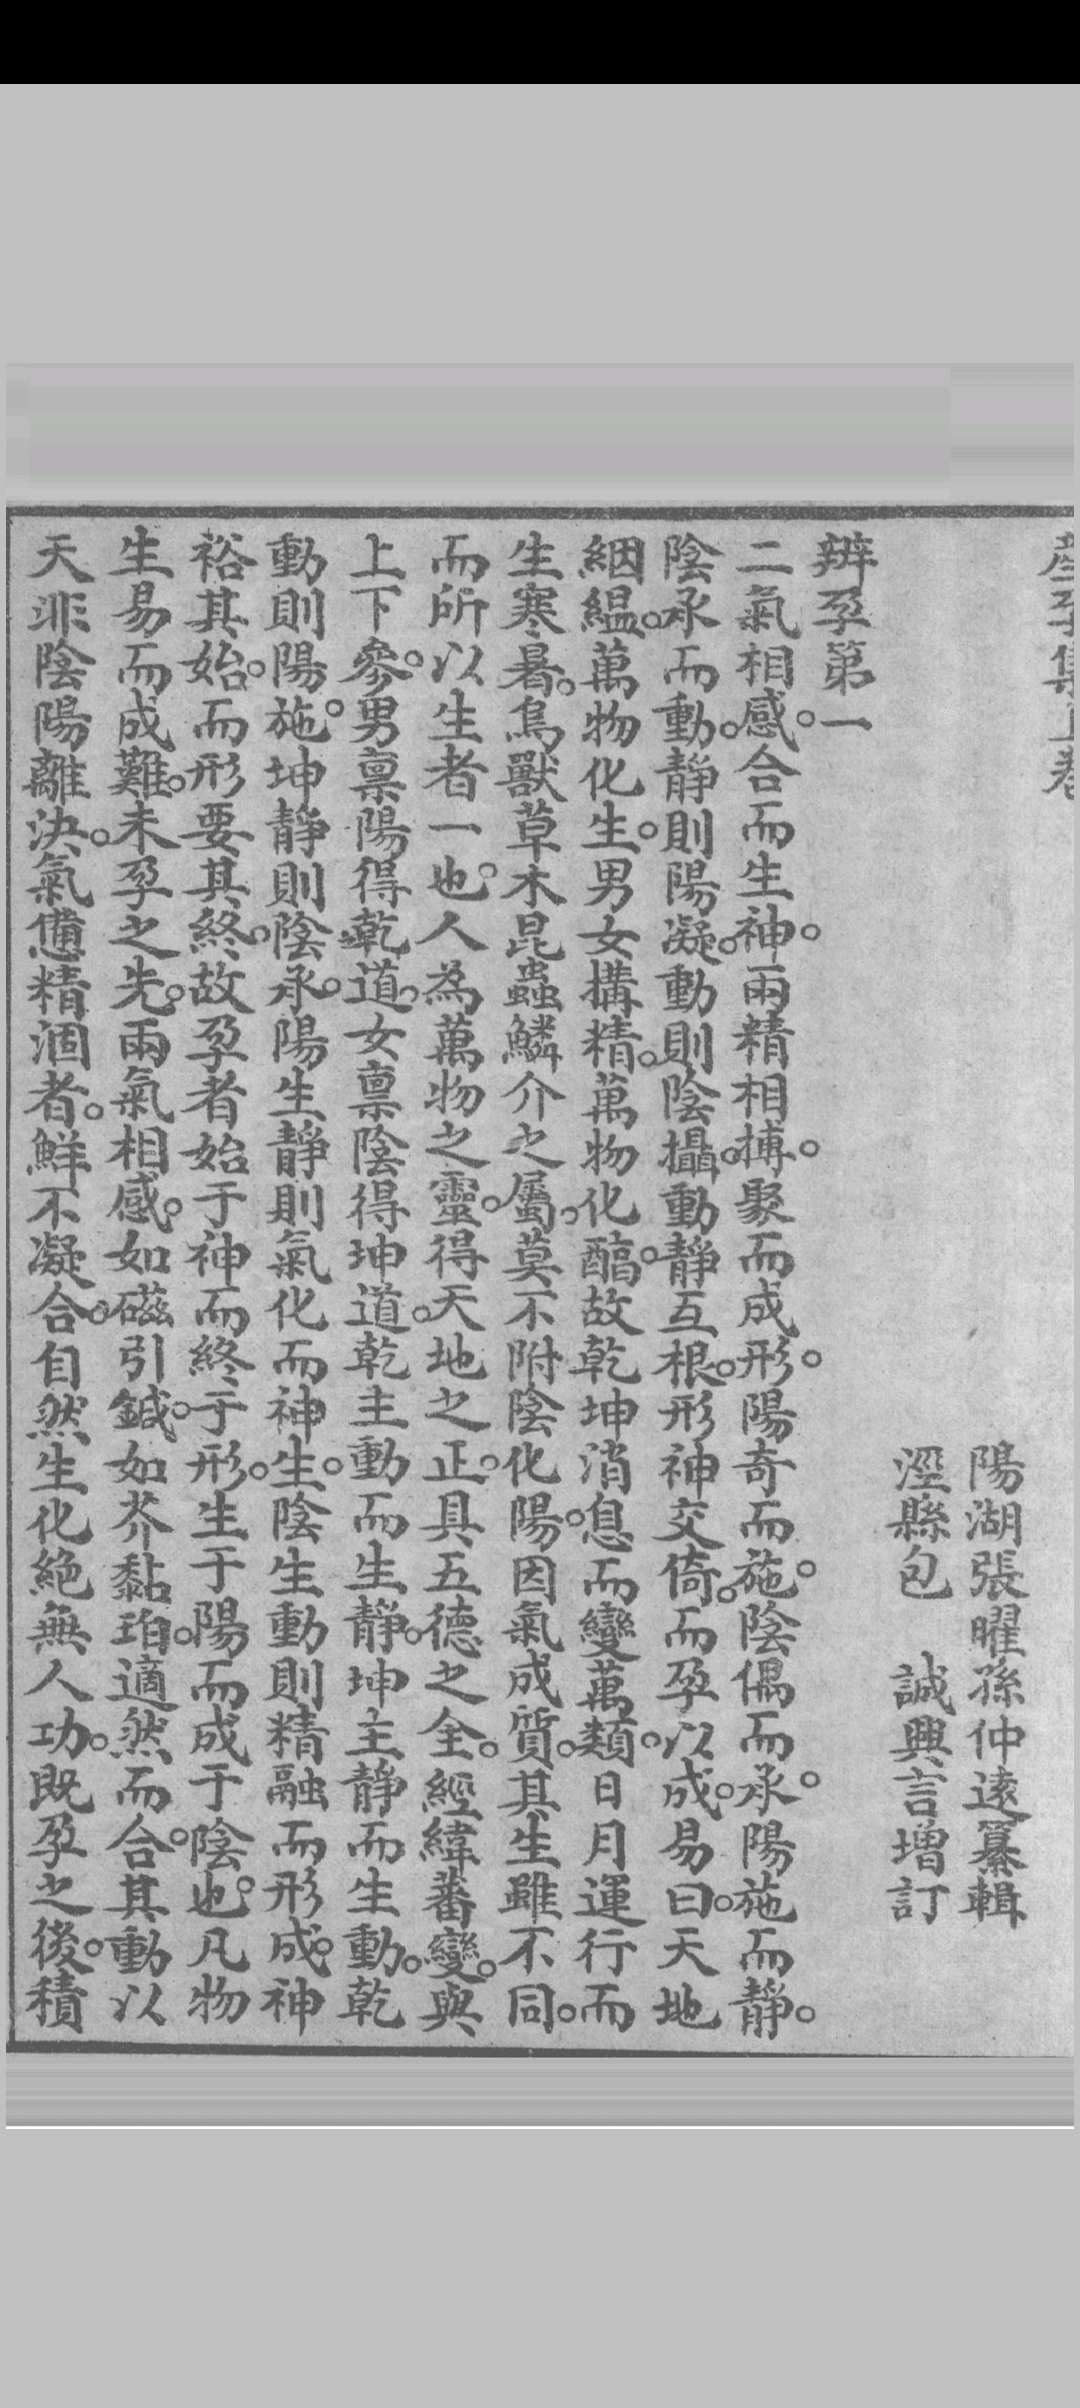 產孕集上卷
陽湖張曜孫仲遠纂輯
涇縣包　誠興言增訂
辨孕第一
二氣相感。合而生神。兩精相摶。聚而成形。陽奇而施。陰偶而承。陽施而靜。
陰承而動。靜則陽凝。動則陰攝。動靜互根。形神交倚。而孕以成。易曰。天地
絪縕。萬物化生。男女搆精。萬物化醕。故乾坤消息。而變萬類。日月運行而
生寒暑。鳥獸草木昆蟲鱗介之屬。莫不附陰化陽。因氣成質。其生雖不同。
而所以生者一也。人為萬物之靈。得天地之正。具五德之全。經緯蕃變。與
上下參。男稟陽得乾道。女稟陰得坤道。乾主動而生靜。坤主靜而生動。乾
動則陽施。坤靜則陰承。陽生靜則氣化而神生。陰生動則精融而形成。神
裕其始。而形要其終。故孕者始于神而終于形。生于陽而成于陰也。凡物
生易而成難。未孕之先。兩氣相感。如磁引鍼。如芥黏珀。適然而合。其動以
天非陰陽離決。氣憊精涸者。鮮不凝合。自然生化絕無人功。既孕之後。積